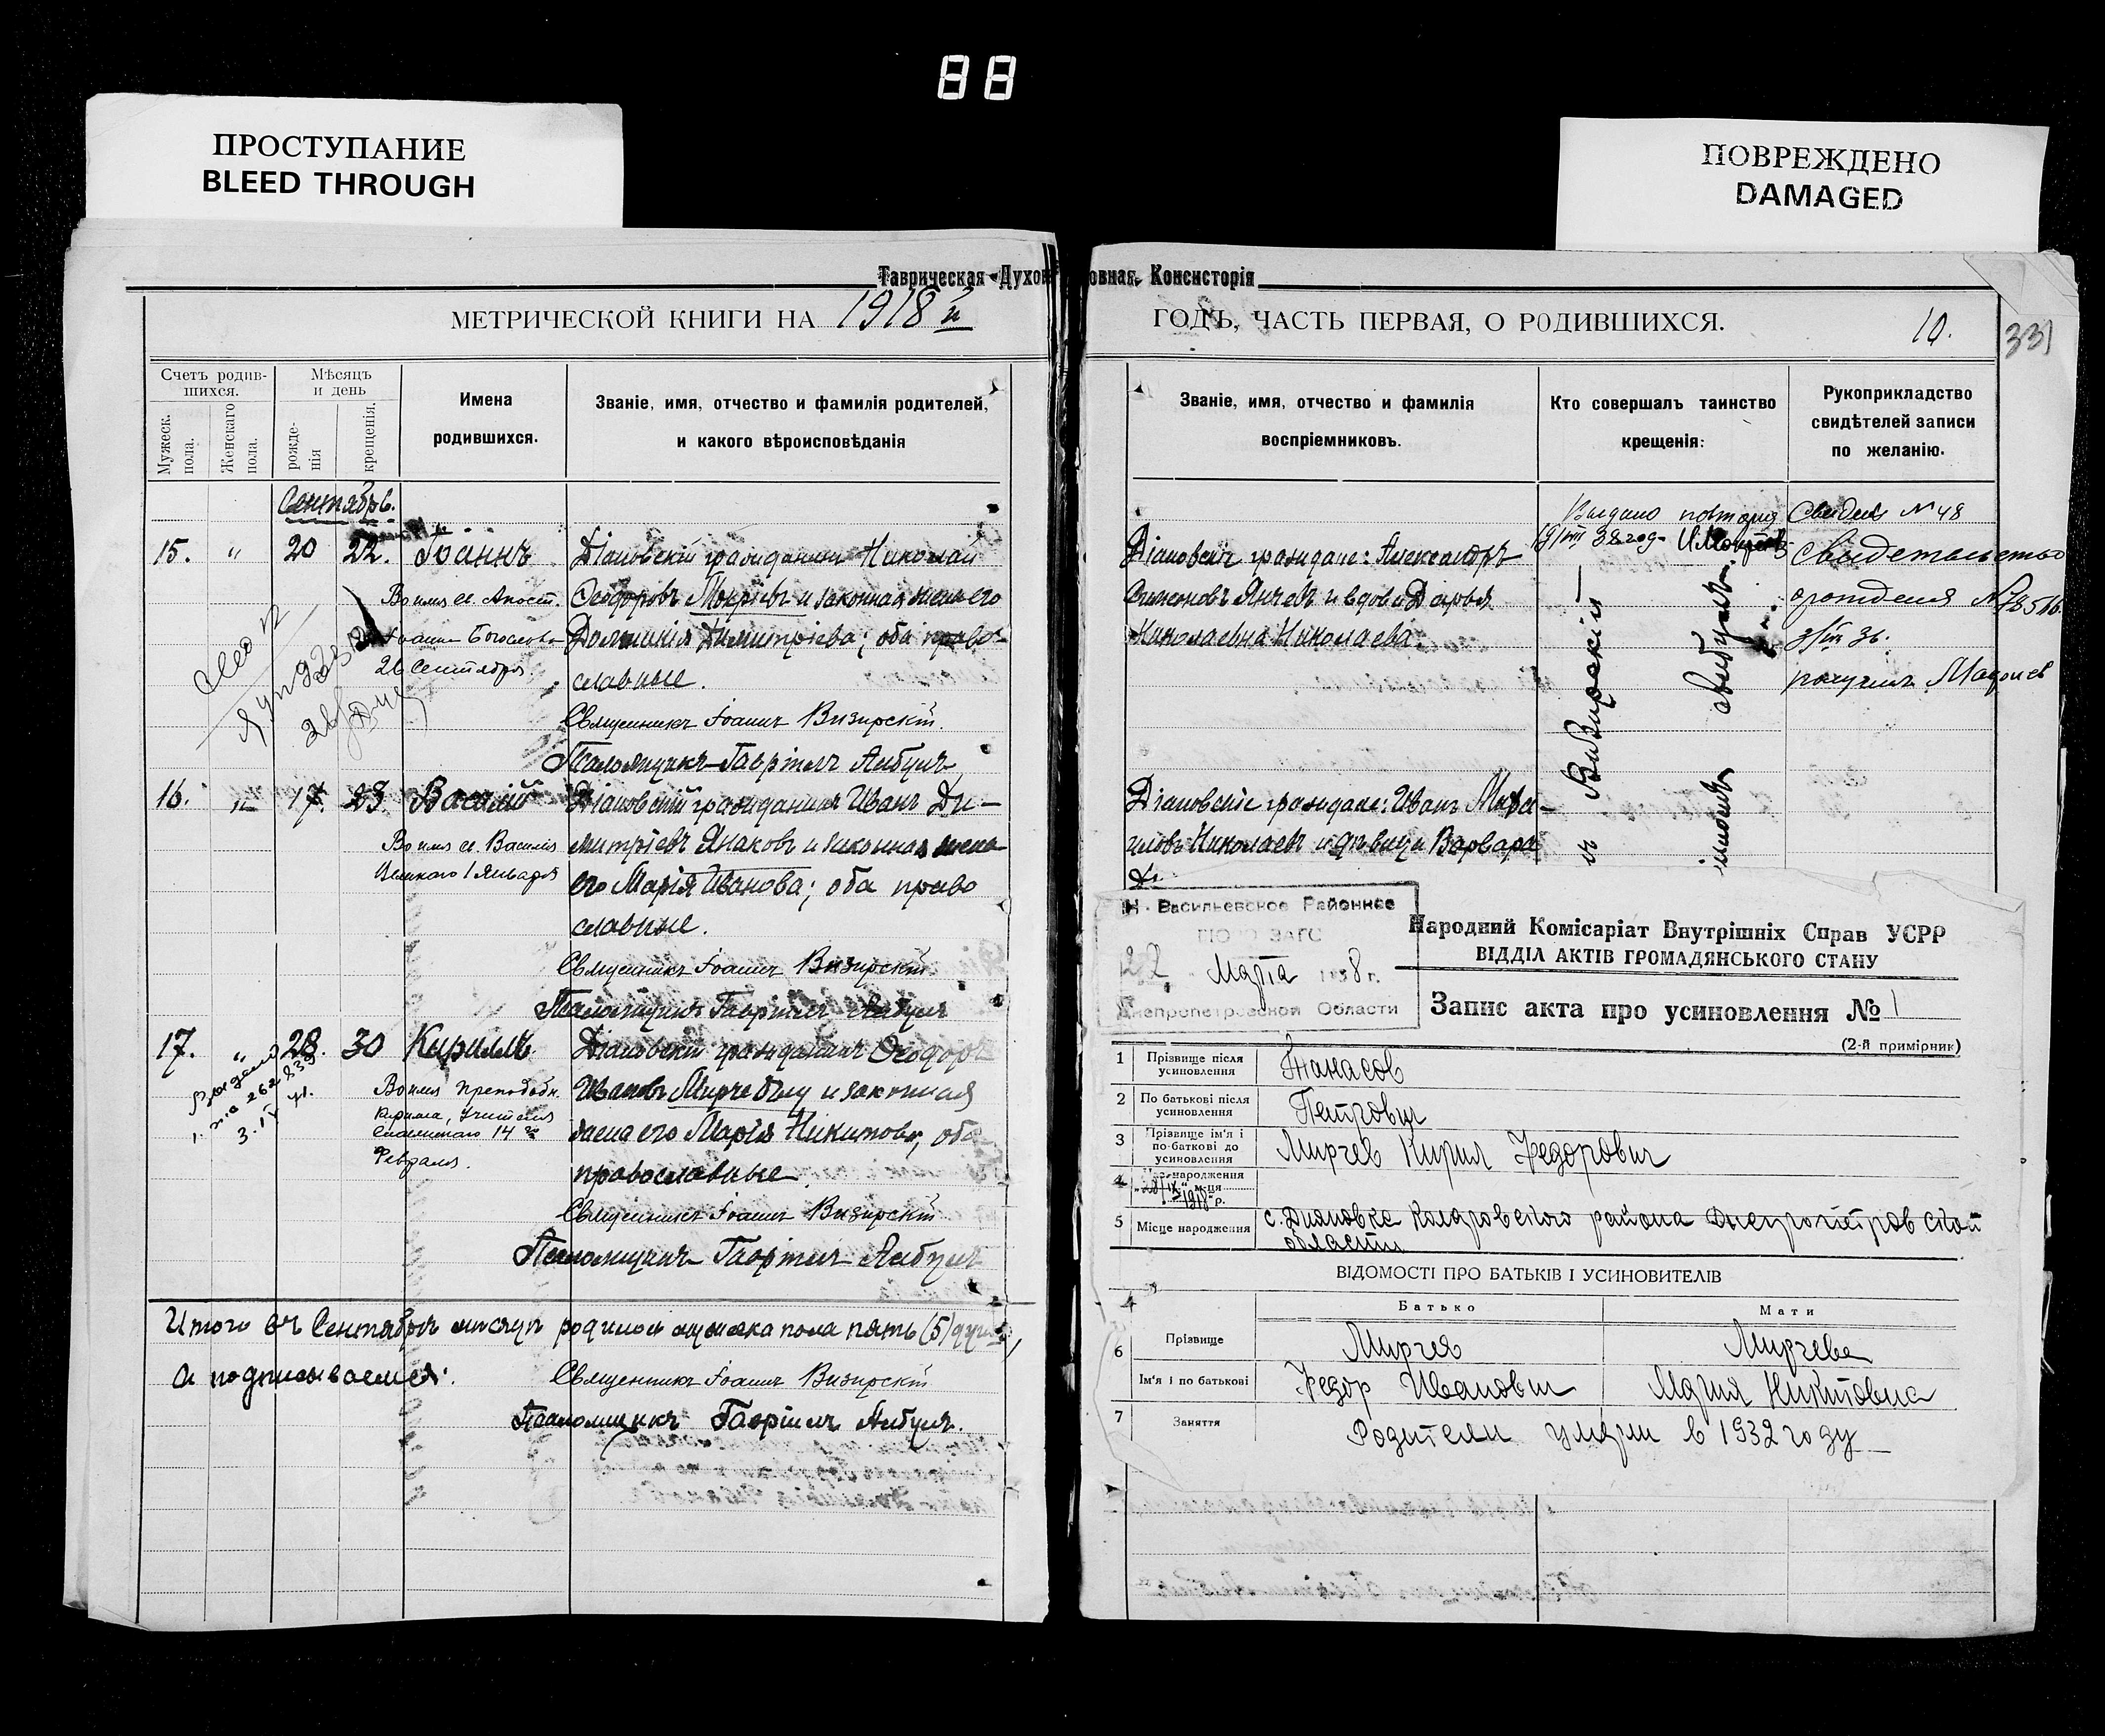 88
ПРОСТУПАНИЕ
BLEED THROUGH
ПОВРЕЖДЕНО
DAMAGED
Таврическая Духовная Консисторія
МЕТРИЧЕСКОЙ КНИГИ НА 1918 й
ГОДЪ, ЧАСТЬ ПЕРВАЯ, О РОДИВШИХСЯ.
10.
331
Счетъ родив-
шихся.
Мужеск. пола.
Женскаго пола.
Мѣсяцъ
и день
рожде-
нія
крещенія.
Имена
родившихся.
Званіе, имя, отчество и фамилія родителей,
и какого вѣроисповѣданія
Званіе, имя, отчество и фамилія
воспріемниковъ.
Кто совершалъ таинство
крещенія:
Рукоприкладство
свидѣтелей записи
по желанію.
Сентябрь.
15. " 20 22. Іоаннъ
Во имя св. Апост.
Іоанна Богослова
26 Сентября.
Діановскій гражданинъ Николай
Ѳеодоровъ Мокріевъ и законная жена его
Домникія Димитріева; оба право-
славные.
Священникъ Іоаннъ Визирскій.
Псаломщикъ Гавріилъ Албулъ
Діановскіе граждане: Александръ
Симеоновъ Янчевъ и вдова Дарья
Николаевна Николаева.
Выдано повторн
Свидет № 48
Свидетельство
получил
16. 17. 23 Василій
Во имя св. Василія
Великого 1 Января
Діановскій гражданинъ Иванъ Ди-
митріевъ Янаковъ и законная жена
его Марія Иванова; оба право
славные.
Священникъ Іоаннъ Визирскій
Псаломщикъ Гавріилъ Албулъ
Діановскіе граждане: Иванъ
Николаевъ и дѣвица Варвара
17. " 28. 30 Кириллъ.
Выдано
3. IV
Во имя преподобн.
Кирилла, Учителя
Словенского 14 го
Февраля.
Діановскій гражданинъ Ѳеодоръ
Ивановъ и законная
жена его Марія Никитова, оба
православные.
Священникъ Іоаннъ Визирскій
Псаломщикъ Гавріилъ Албулъ
Итого въ Сентябрѣ мѣсяцѣ родилось мужска пола пять (5) душъ,
а подписываемся:
Священникъ Іоаннъ Визирскій
Псаломщикъ Гавріилъ Албулъ.
Н. Васильевское Районное
ЗАГС
22 Марта 1938 г.
Днепропетровской Области
Народний Комісаріат Внутрішніх Справ УСРР
ВІДДІЛ АКТІВ ГРОМАДЯНСЬКОГО СТАНУ
Запис акта про усиновлення № 1
(2-й примірник)
1 Прізвище після усиновлення Танасов
2 По батькові після усиновлення Петрович
3 Прізвище ім'я і по-баткові до усиновлення Мирчев Кирил Федорович
4 народження 28/IX м-ця 1918 р.
5 Місце народження с. Дияновка Коларовского района Днепропетровской
области
ВІДОМОСТІ ПРО БАТЬКІВ І УСИНОВИТЕЛІВ
Батько Мати
6 Прізвище Мирчев Мирчева
Ім'я і по батькові Федор Иванович Мария Никитовна
7 Заняття Родители умерли в 1932 году